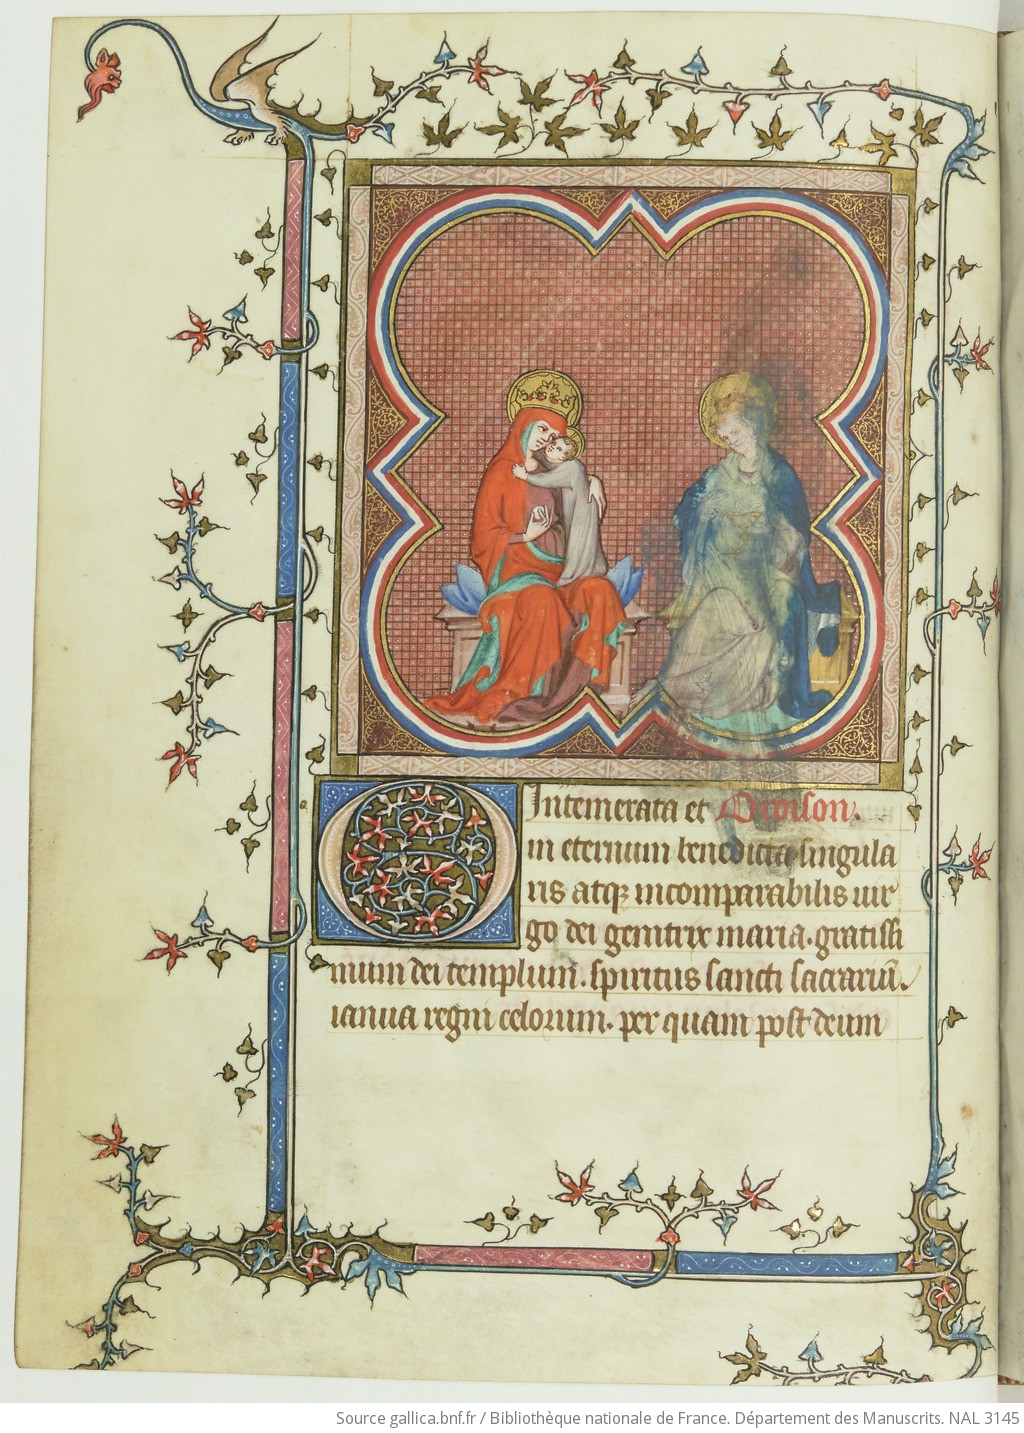 O Intemerata et Oroison.
in eternum benedicta singula
ris atqꝫ incomparabilis uir
go dei genitrix maria. gratissi
mum dei templum. spiritus sancti sacrariū.
ianua regni celorum. per quam post deum
Source gallica.bnf.fr / Bibliothèque nationale de France. Département des Manuscrits. NAL 3145